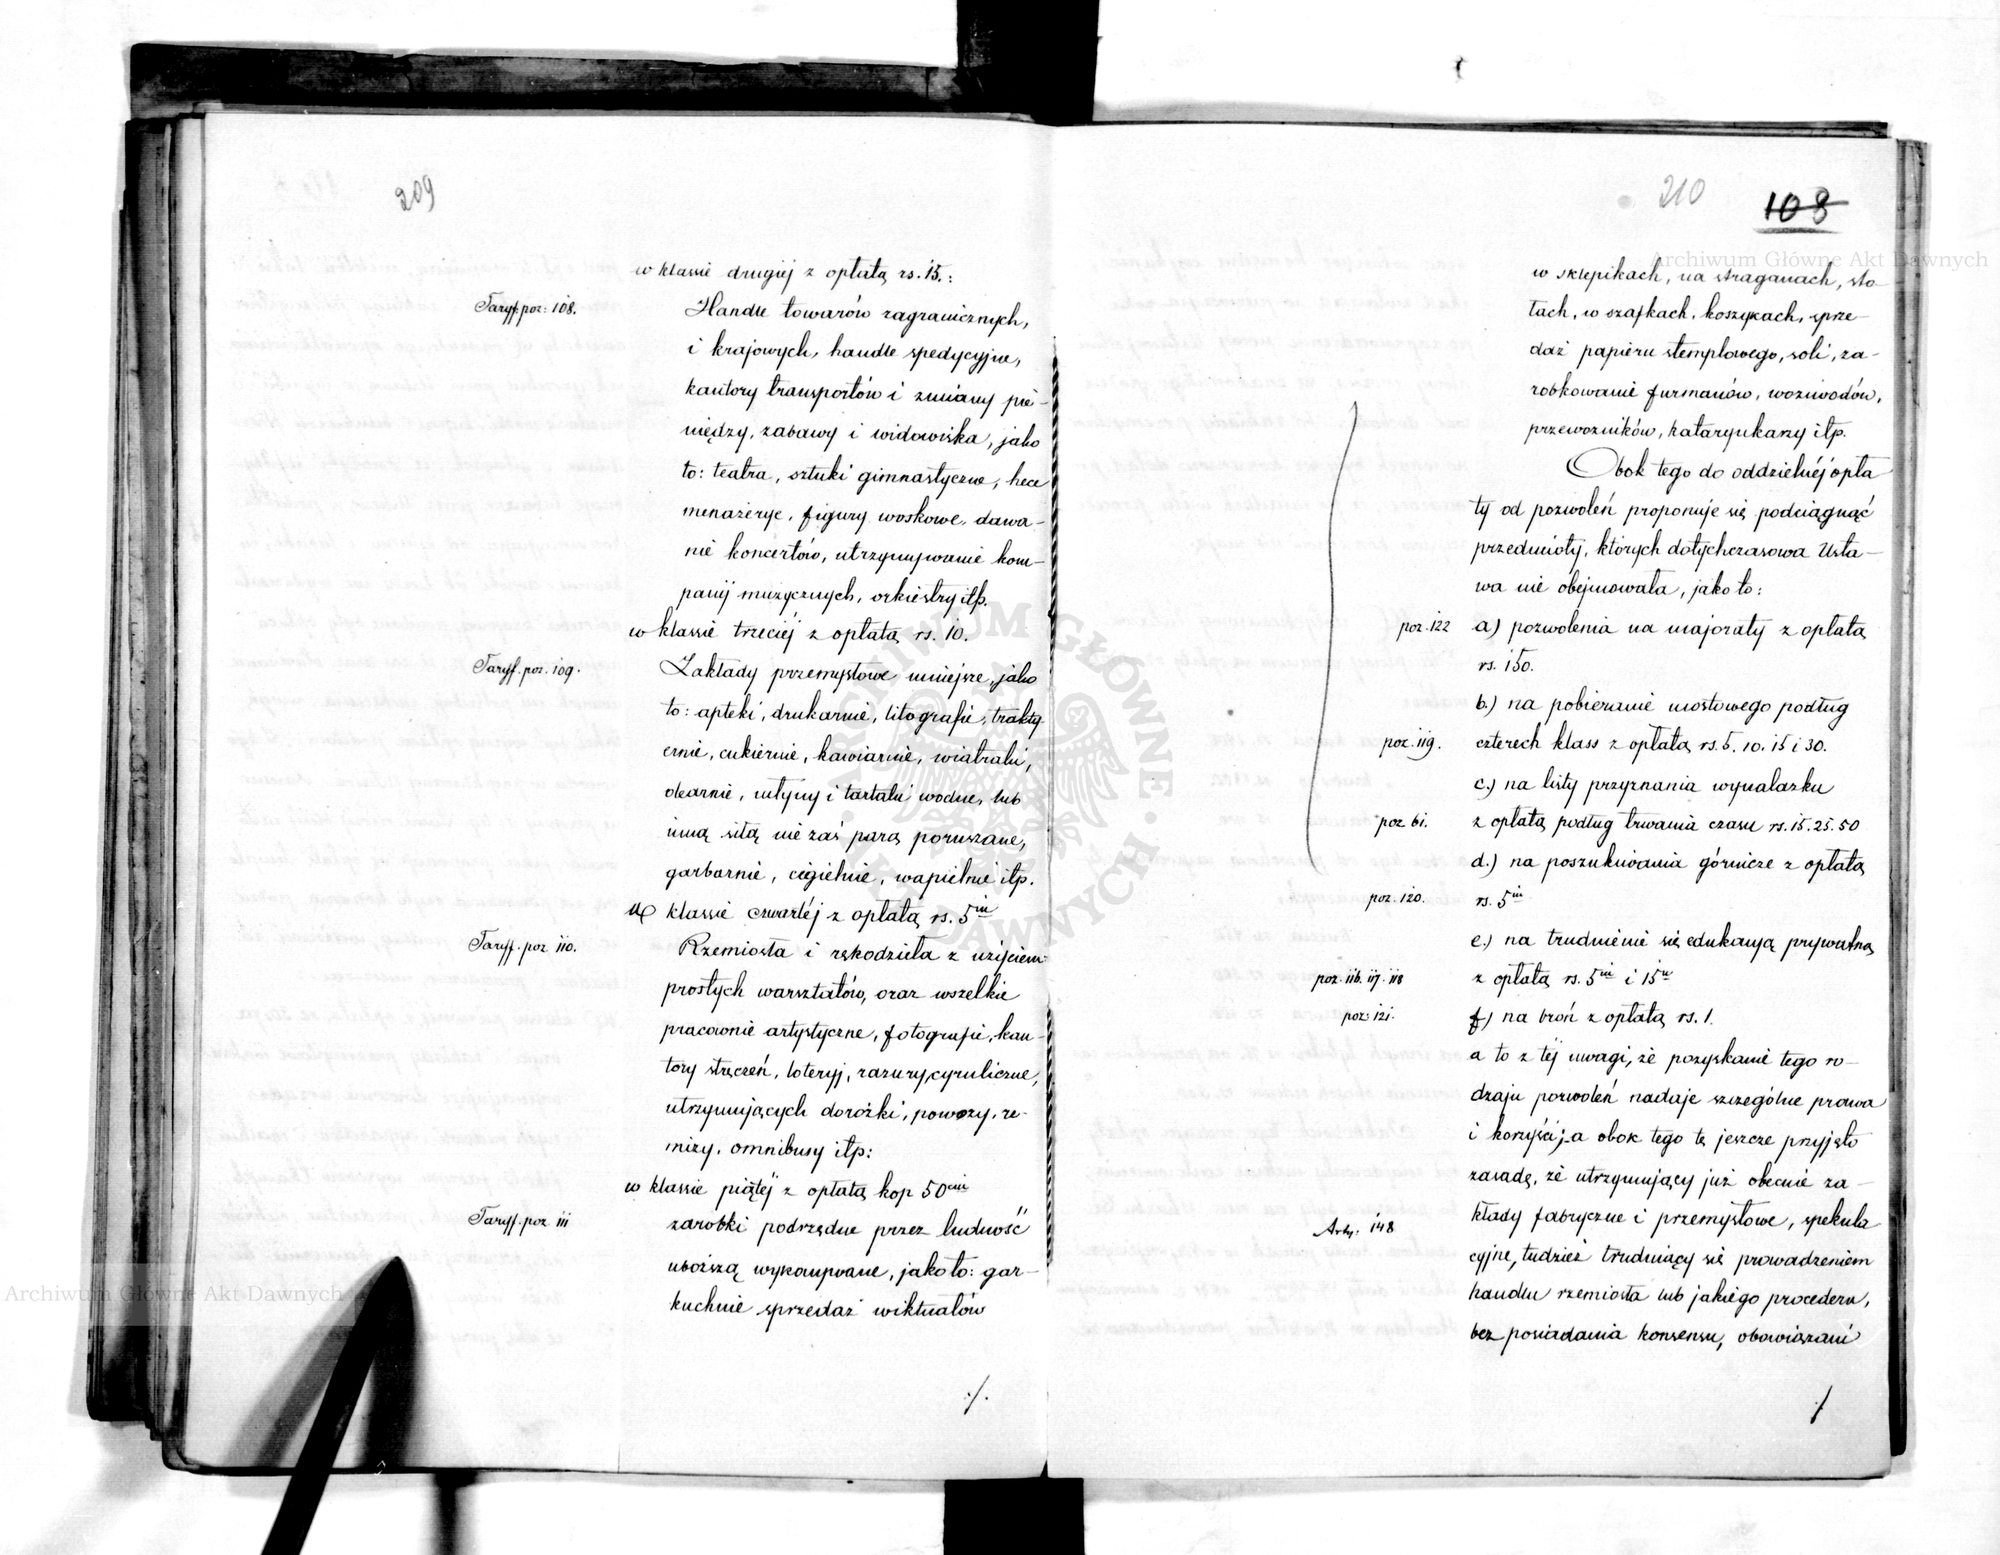 209
w klassie drugiej z opłatą rs. 15.:
Taryff. poz: 108.
Handle towarów zagranicznych,
i krajowych, handle spedycyjne,
kantory transportów i zmiany pie-
niędzy, zabawy i widowiska, jako
to: teatra, sztuki gimnastyczne, hece
menażerye, figury woskowe, dawa-
nie koncertów, utrzymywanie kom-
panij muzycznych, orkiestry itp.
w klassie trzeciéj z opłatą rs. 10.
Taryff. poz. 109.
Zakłady przemysłowe mniejsze, jako
to: apteki, drukarnie, litografie, trakty-
ernie, cukiernie, kawiarnie, wiatraki,
olearnie, młyny i tartaki wodne, lub
inną siłą nie zaś parą poruszane,
garbarnie, cegielnie, wapielnie itp.
w klassie czwartéj z opłatą rs. 5iu
Taryff. poz 110.
Rzemiosła i rękodzieła z użyciem
prostych warsztatów, oraz wszelkie
pracownie artystyczne, fotografie, kan-
tory stręczeń, loteryj, razury cyruliczne,
utrzymujących dorożki, powozy, re-
mizy, omnibusy itp:
w klassie piątéj z opłatą kop 50ciu
Taryff. poz 111
zarobki podrzędne przez ludność
uboższą wykonywane, jako to: gar-
kuchnie sprzedaż wiktuałów
./.
210
108
w sklepikach, na straganach, sto-
łach, w szafkach, koszykach, sprze-
daż papieru stemplowego, soli, za-
robkowanie furmanów, woziwodów,
przewoźników, katarynkarzy itp.
Obok tego do oddzielnéj opła
ty od pozwoleń proponuje się podciągnąć
przedmioty, których dotychczasowa Usta-
wa nie obejmowała, jako to:
poz. 122
a) pozwolenia na majoraty z opłatą
rs. 150.
b.) na pobieranie mostowego podług
poz. 119.
czterech klass z opłatą rs. 5. 10. 15 i 30.
c.) na listy przyznania wynalazku
poz 61.
z opłatą podług trwania czasu rs. 15. 25. 50
d.) na poszukiwania górnicze z opłatą
poz. 120.
rs. 5iu
e.) na trudnienie się edukacyą prywatną
poz. 116. 117. 118
z opłatą rs. 5iu i 15u
poz: 121.
f) na broń z opłatą rs. 1.
a to z téj uwagi, że pozyskanie tego ro-
dzaju pozwoleń nadaje szczególne prawa
i korzyści; a obok tego tę jeszcze przyjęto
zasadę, że utrzymujący już obecnie za-
kłady fabryczne i przemysłowe, spekula
Arty. 148
cyjne, tudzież trudniący się prowadzeniem
handlu rzemiosła lub jakiego procederu,
bez posiadania konsensu, obowiązani
./
Archiwum Główne Akt Dawnych
Archiwum Główne Akt Dawnych
ARCHIWUM GŁÓWNE AKT DAWNYCH